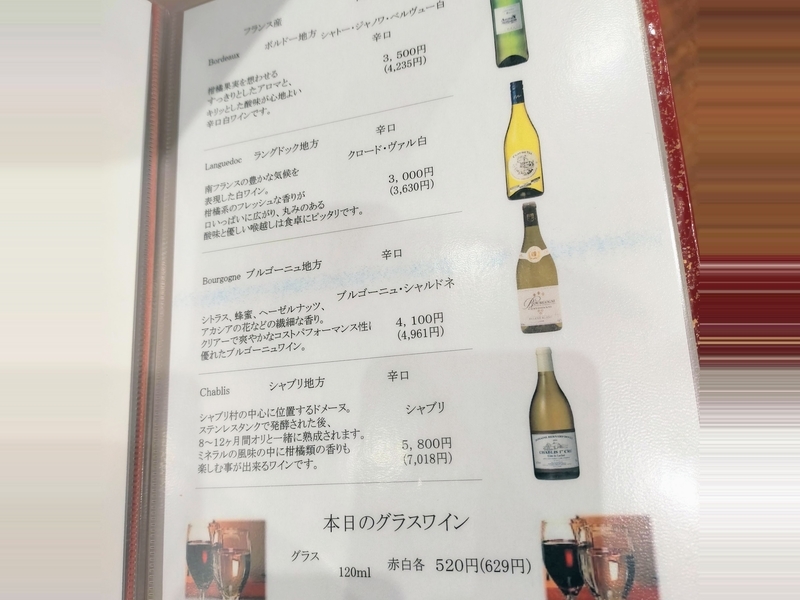 フランス産
Bordeaux ボルドー地方 シャトー・ジャノワ・ベルヴュー白
辛口
3,500円
(4,235円)
柑橘果実を想わせる
すっきりとしたアロマと、
キリッとした酸味が心地よい
辛口白ワインです。
Languedoc ラングドック地方 辛口
クロード・ヴァル白
3,000円
(3,630円)
南フランスの豊かな気候を
表現した白ワイン。
柑橘系のフレッシュな香りが
口いっぱいに広がり、丸みのある
酸味と優しい喉越しは食卓にピッタリです。
Bourgogne ブルゴーニュ地方 辛口
ブルゴーニュ・シャルドネ
4,100円
(4,961円)
シトラス、蜂蜜、ヘーゼルナッツ、
アカシアの花などの繊細な香り。
クリアーで爽やかなコストパフォーマンス性に
優れたブルゴーニュワイン。
Chablis シャブリ地方 辛口
シャブリ
5,800円
(7,018円)
シャブリ村の中心に位置するドメーヌ。
ステンレスタンクで発酵された後、
8～12ヶ月間オリと一緒に熟成されます。
ミネラルの風味の中に柑橘類の香りも
楽しむ事が出来るワインです。
本日のグラスワイン
グラス 120ml 赤白各 520円(629円)